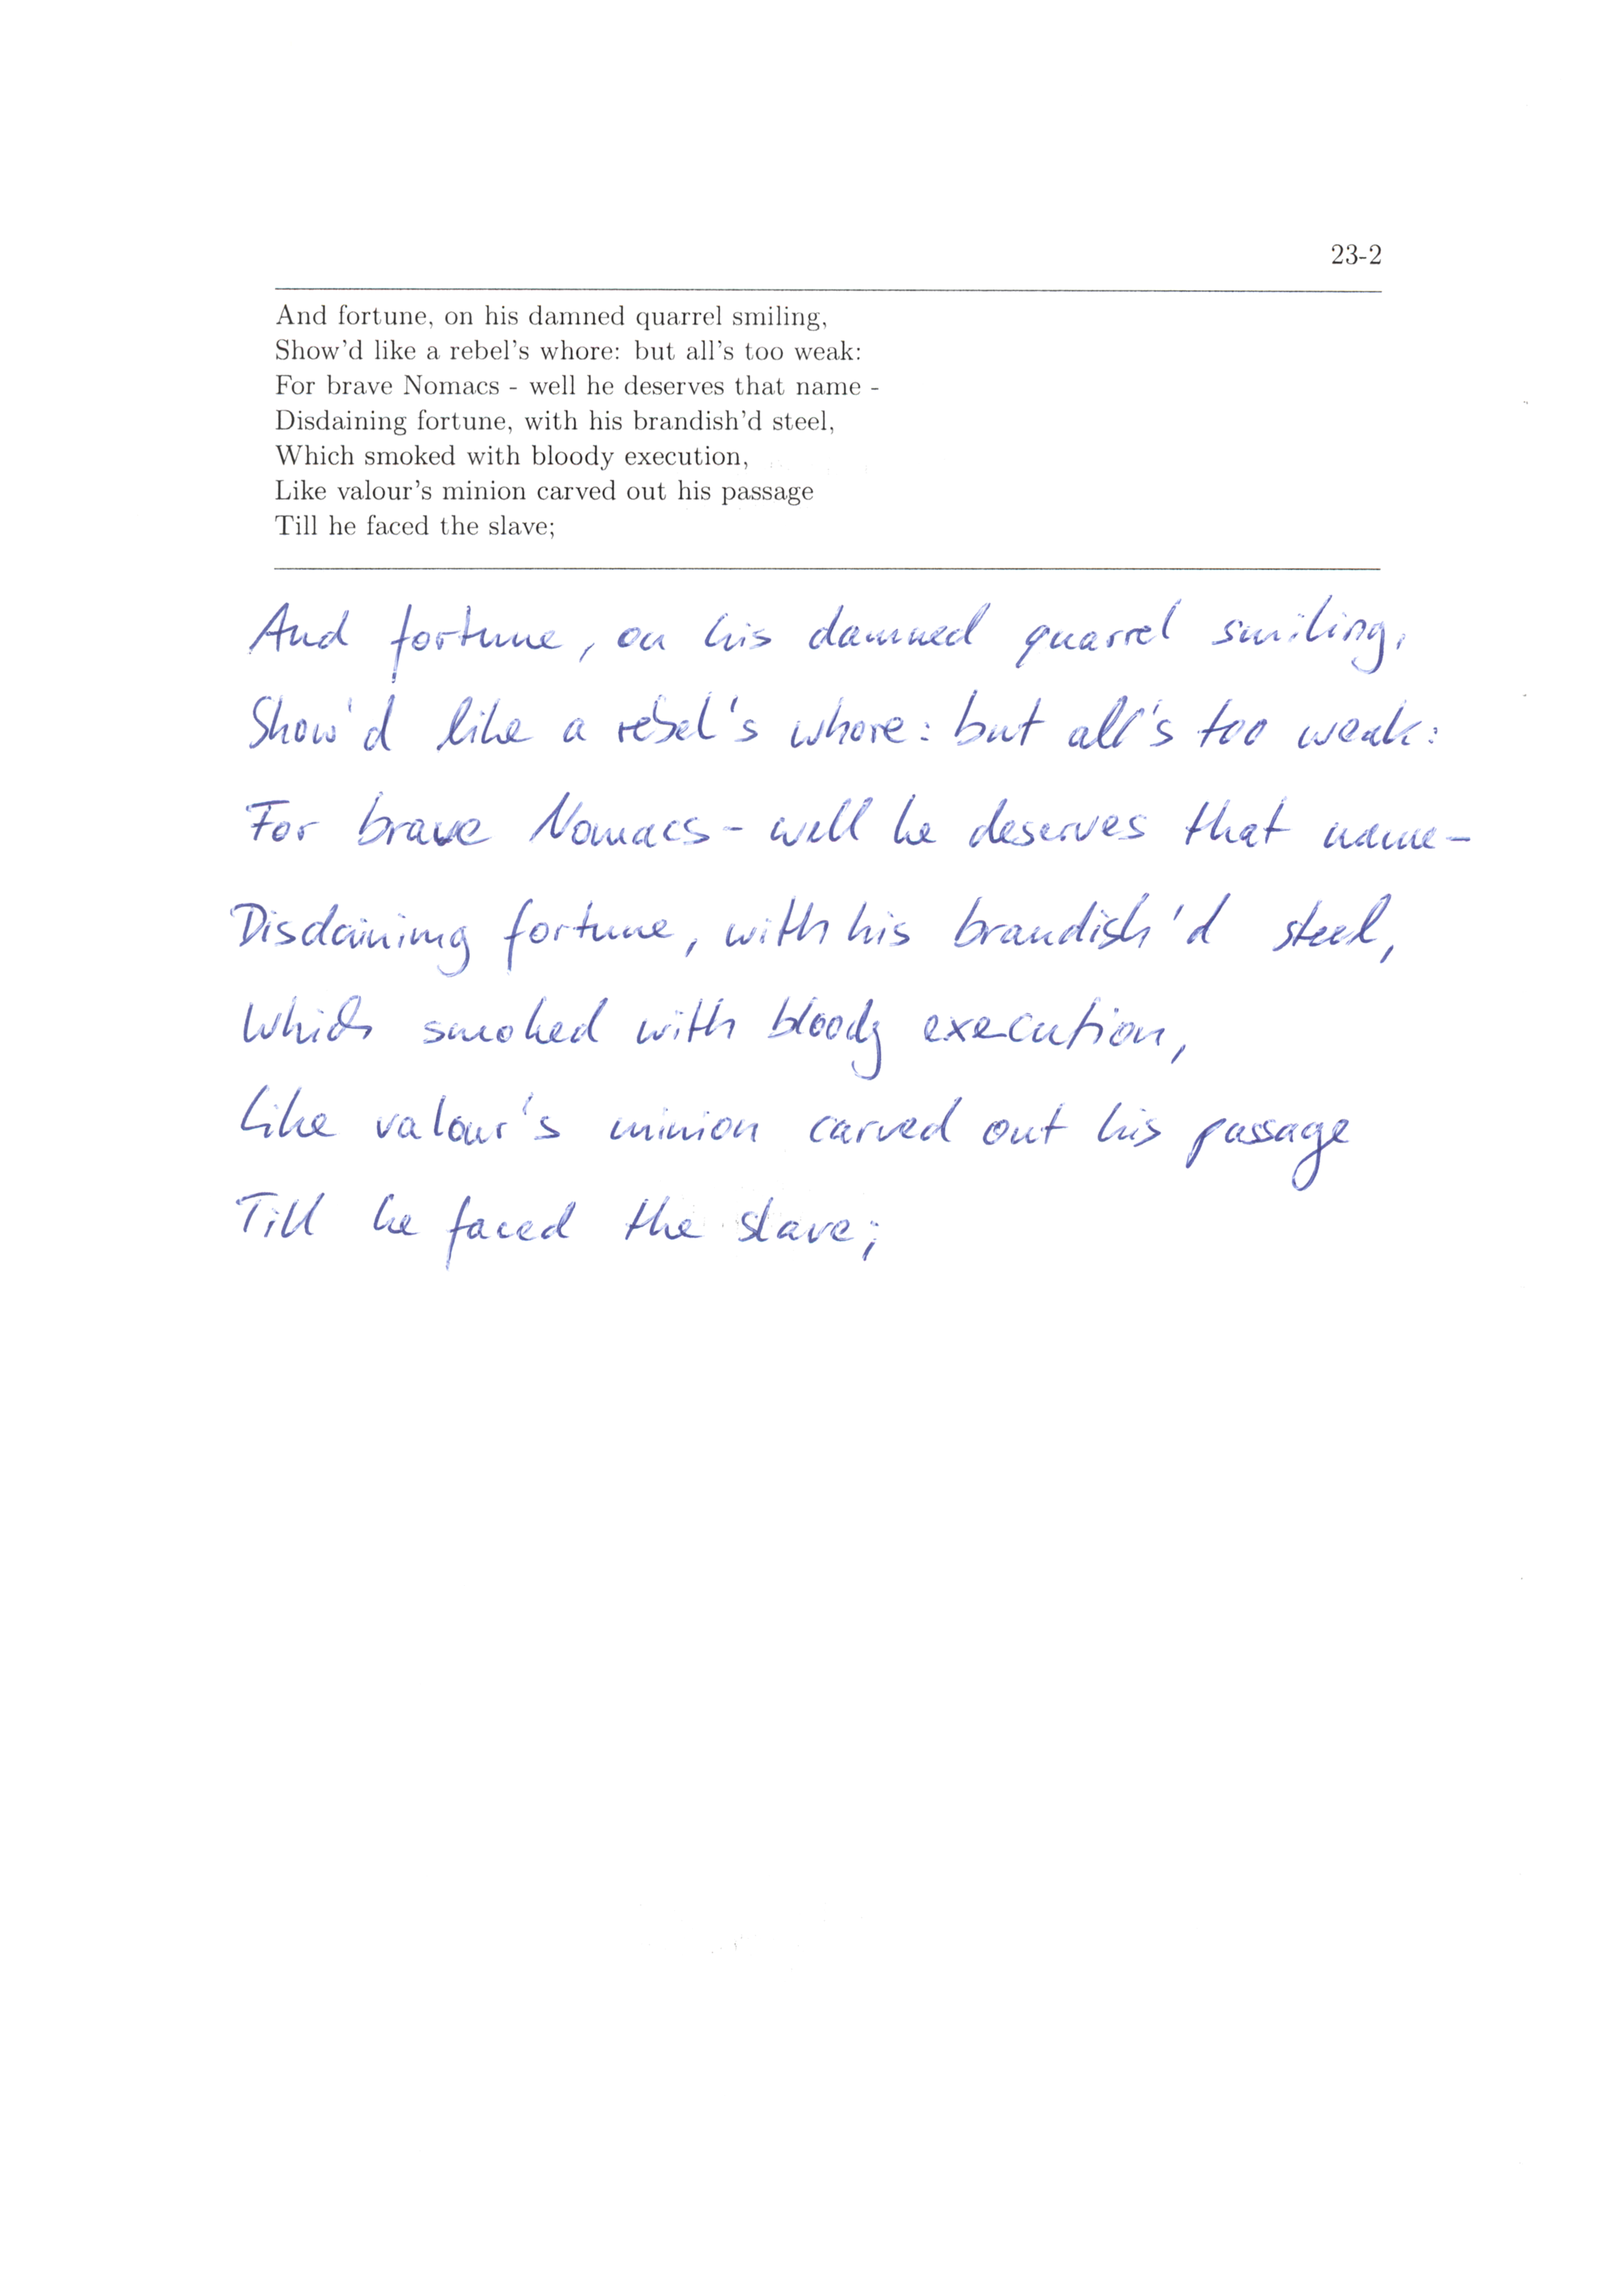 23-2
And fortune, on his damned quarrel smiling,
Show'd like a rebel's whore: but all's too weak:
For brave Nomacs - well he deserves that name -
Disdaining fortune, with his brandish'd steel,
Which smoked with bloody execution,
Like valour's minion carved out his passage
Till he faced the slave;
And fortune, on his damned quarrel smiling,
Show'd like a rebel's whore: but all's too weak:
For brave Nomacs - well he deserves that name -
Disdaining fortune, with his brandish'd steel,
Which smoked with bloody execution,
Like valour's minion carved out his passage
Till he faced the slave;